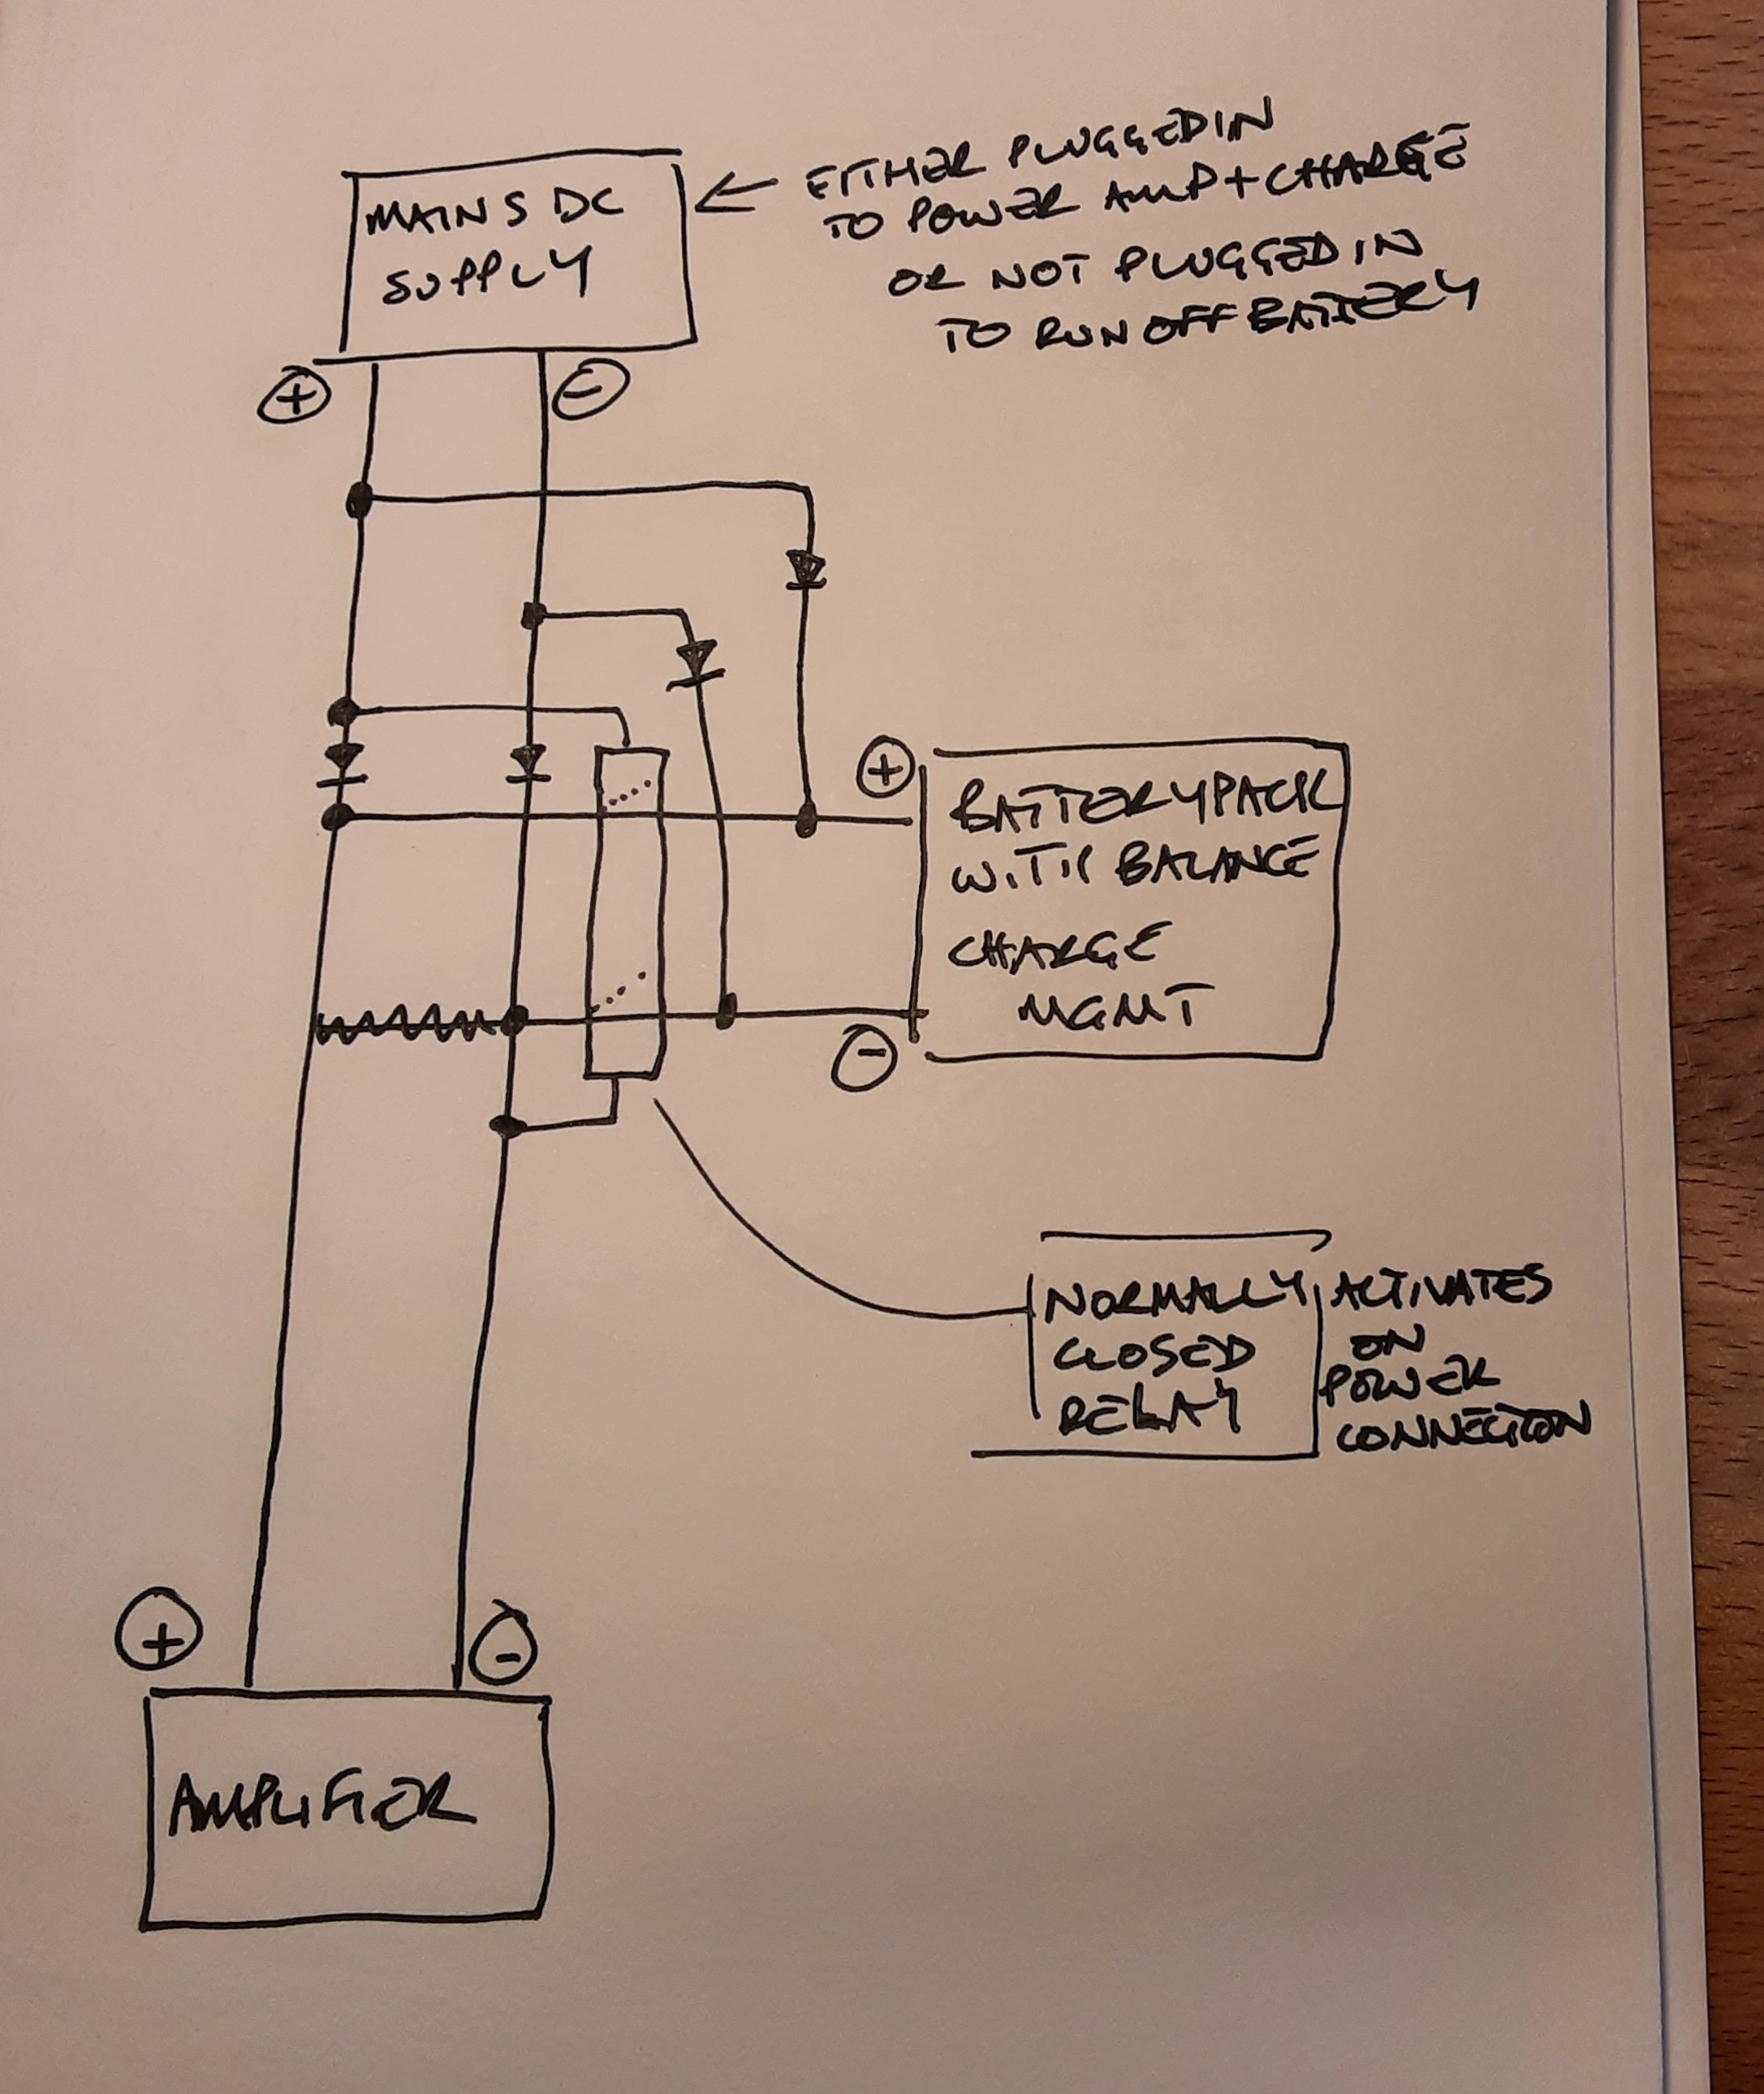 MAINS DC
SUPPLY
EITHER PLUGGED IN
TO POWER AMP + CHARGE
OR NOT PLUGGED IN
TO RUN OFF BATTERY
+
-
+
BATTERY PACK
WITH BALANCE
CHARGE
MGMT
-
NORMALLY
CLOSED
RELAY
ACTIVATES
ON
POWER
CONNECTION
+
-
AMPLIFIER